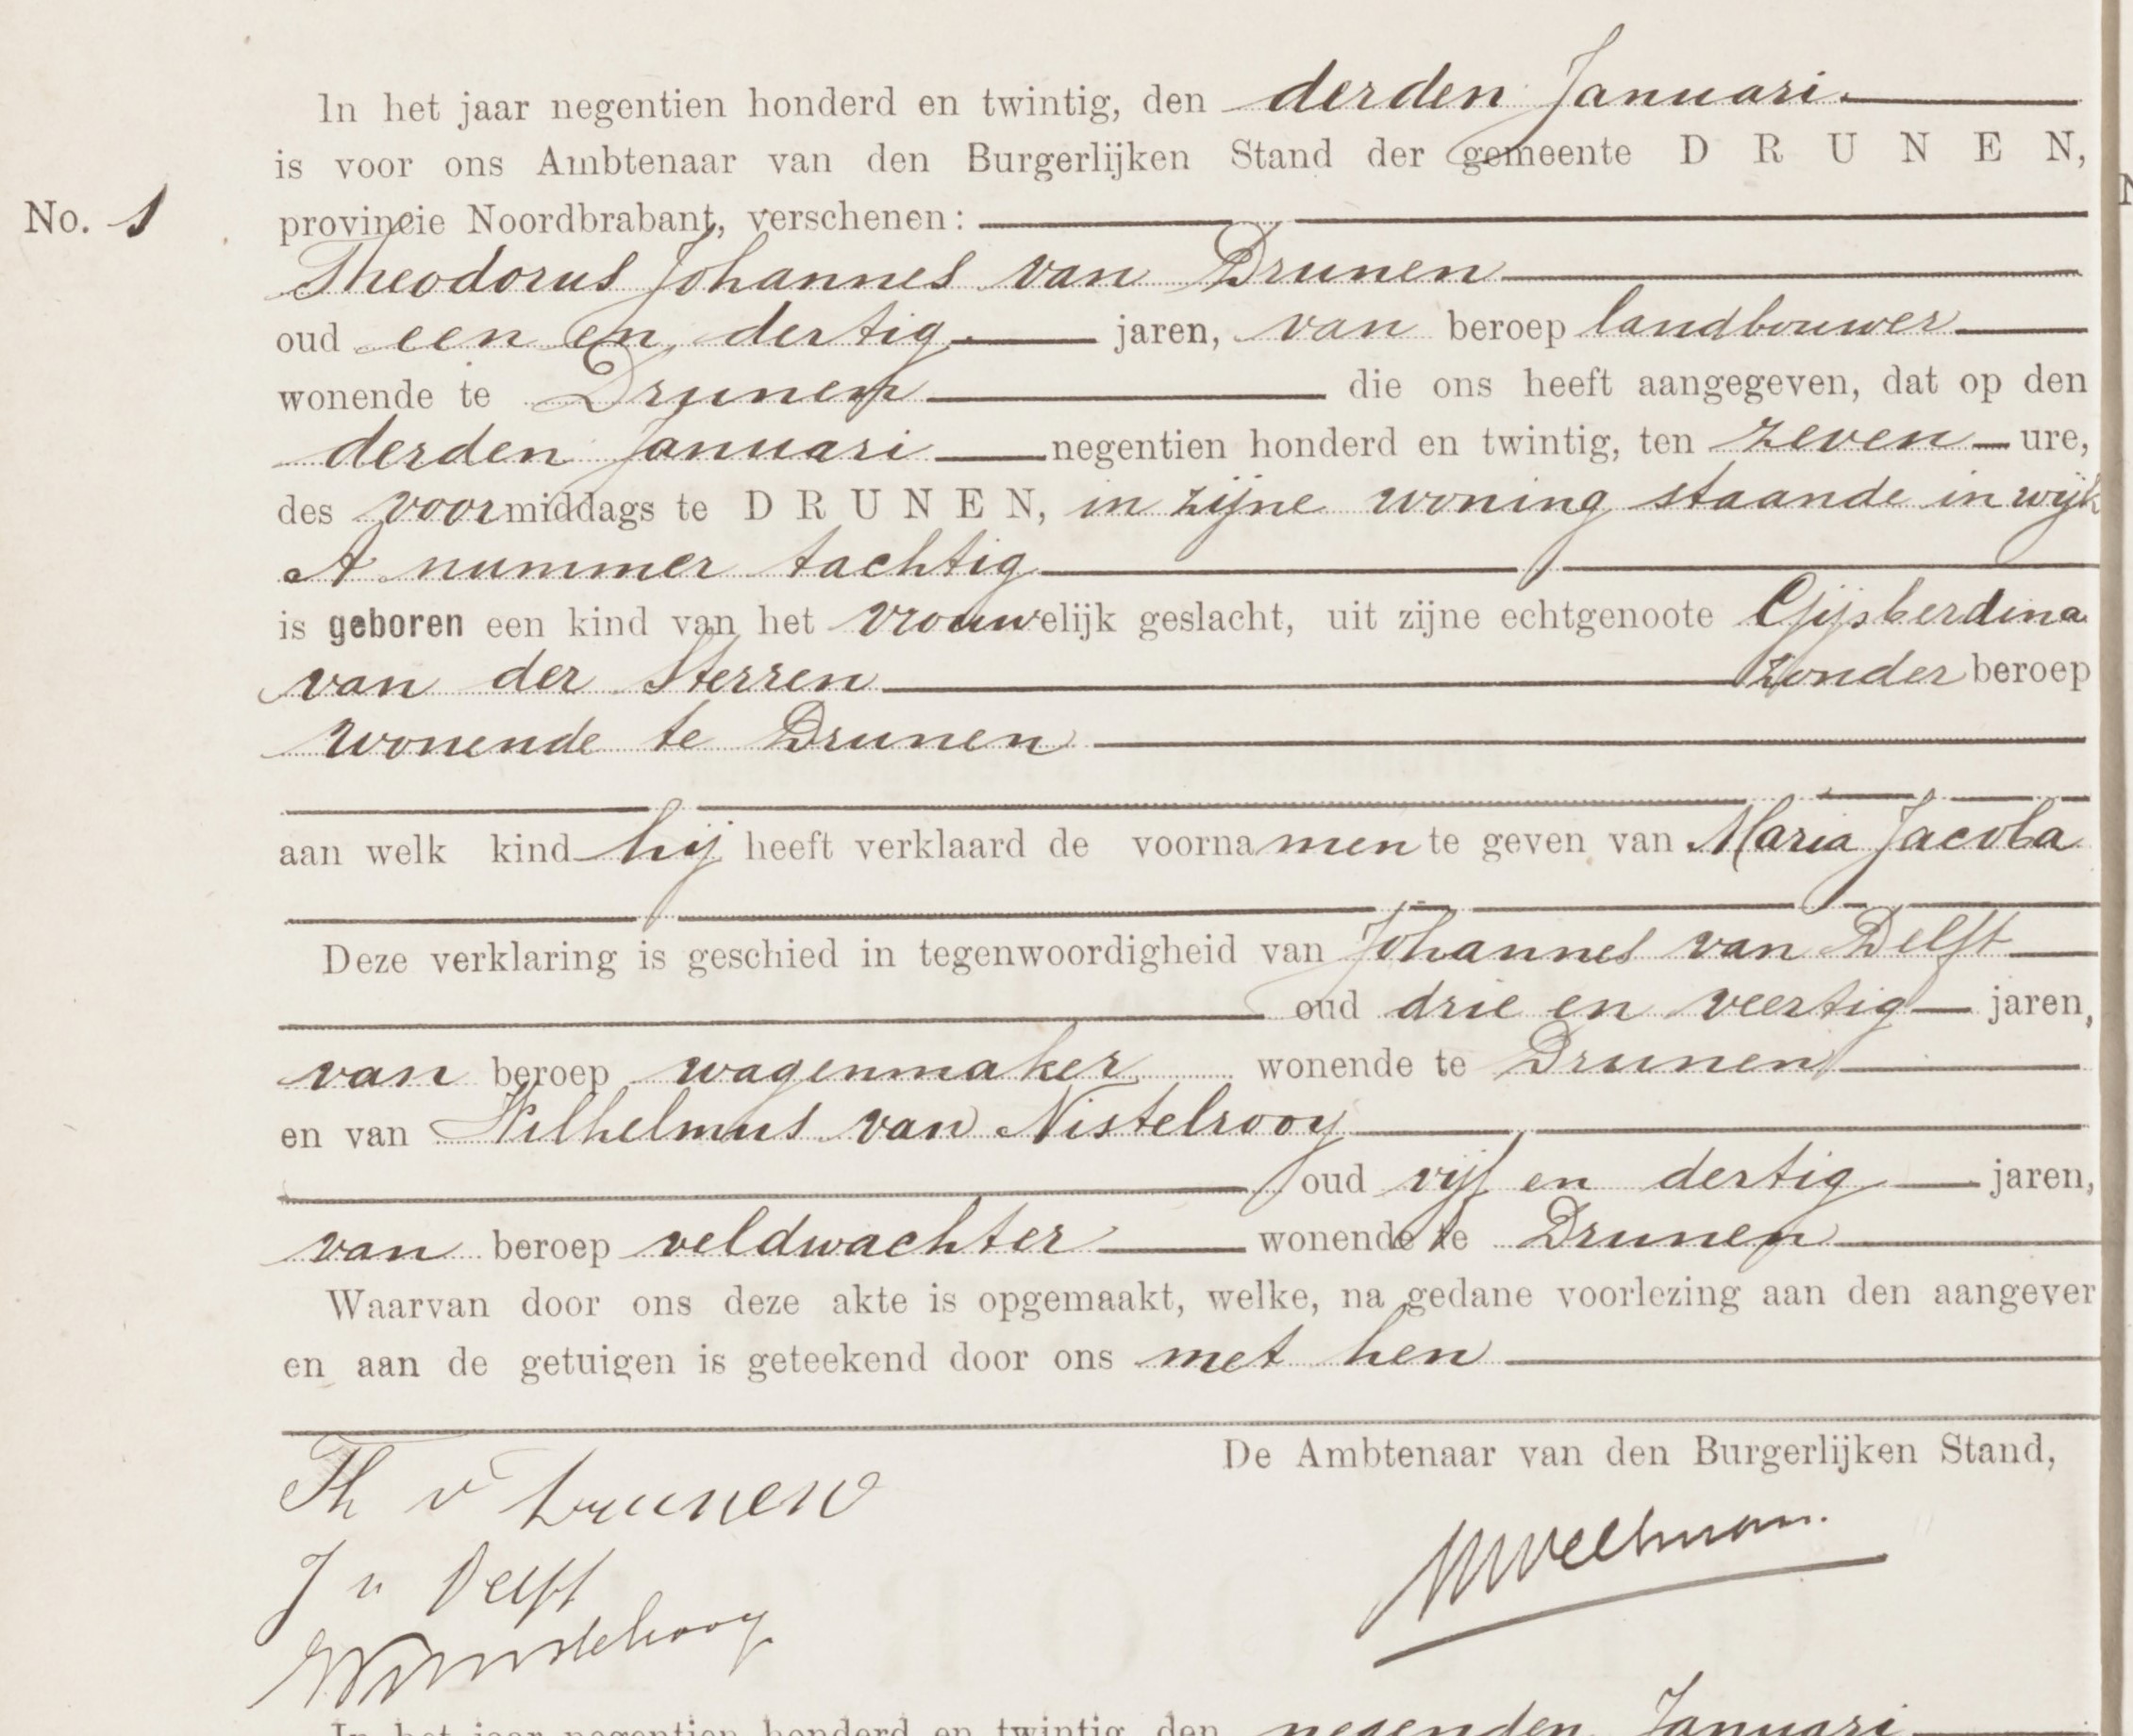 In het jaar negentien honderd en twintig, den derden Januari
is voor ons Ambtenaar van den Burgerlijken Stand der gemeente D R U N E N,
No. 1
provincie Noordbrabant, verschenen:
Theodorus Johannes van Drunen
oud een en dertig jaren, van beroep landbouwer
wonende te Drunen die ons heeft aangegeven, dat op den
derden Januari negentien honderd en twintig, ten zeven ure,
des voormiddags te D R U N E N, in zijne woning staande in wijk
A nummer tachtig
is geboren een kind van het vrouwelijk geslacht, uit zijne echtgenoote Gijsberdina
van der Sterren zonder beroep
wonende te Drunen
aan welk kind hij heeft verklaard de voornamen te geven van Maria Jacoba
Deze verklaring is geschied in tegenwoordigheid van Johannes van Delft
oud drie en veertig jaren,
van beroep wagenmaker wonende te Drunen
en van Wilhelmus van Nistelrooy
oud vijf en dertig jaren,
van beroep veldwachter wonende te Drunen
Waarvan door ons deze akte is opgemaakt, welke, na gedane voorlezing aan den aangever
en aan de getuigen is geteekend door ons met hen
De Ambtenaar van den Burgerlijken Stand,
Th v Drunen
J v Delft
In het jaar negentien honderd en twintig den negenden Januari